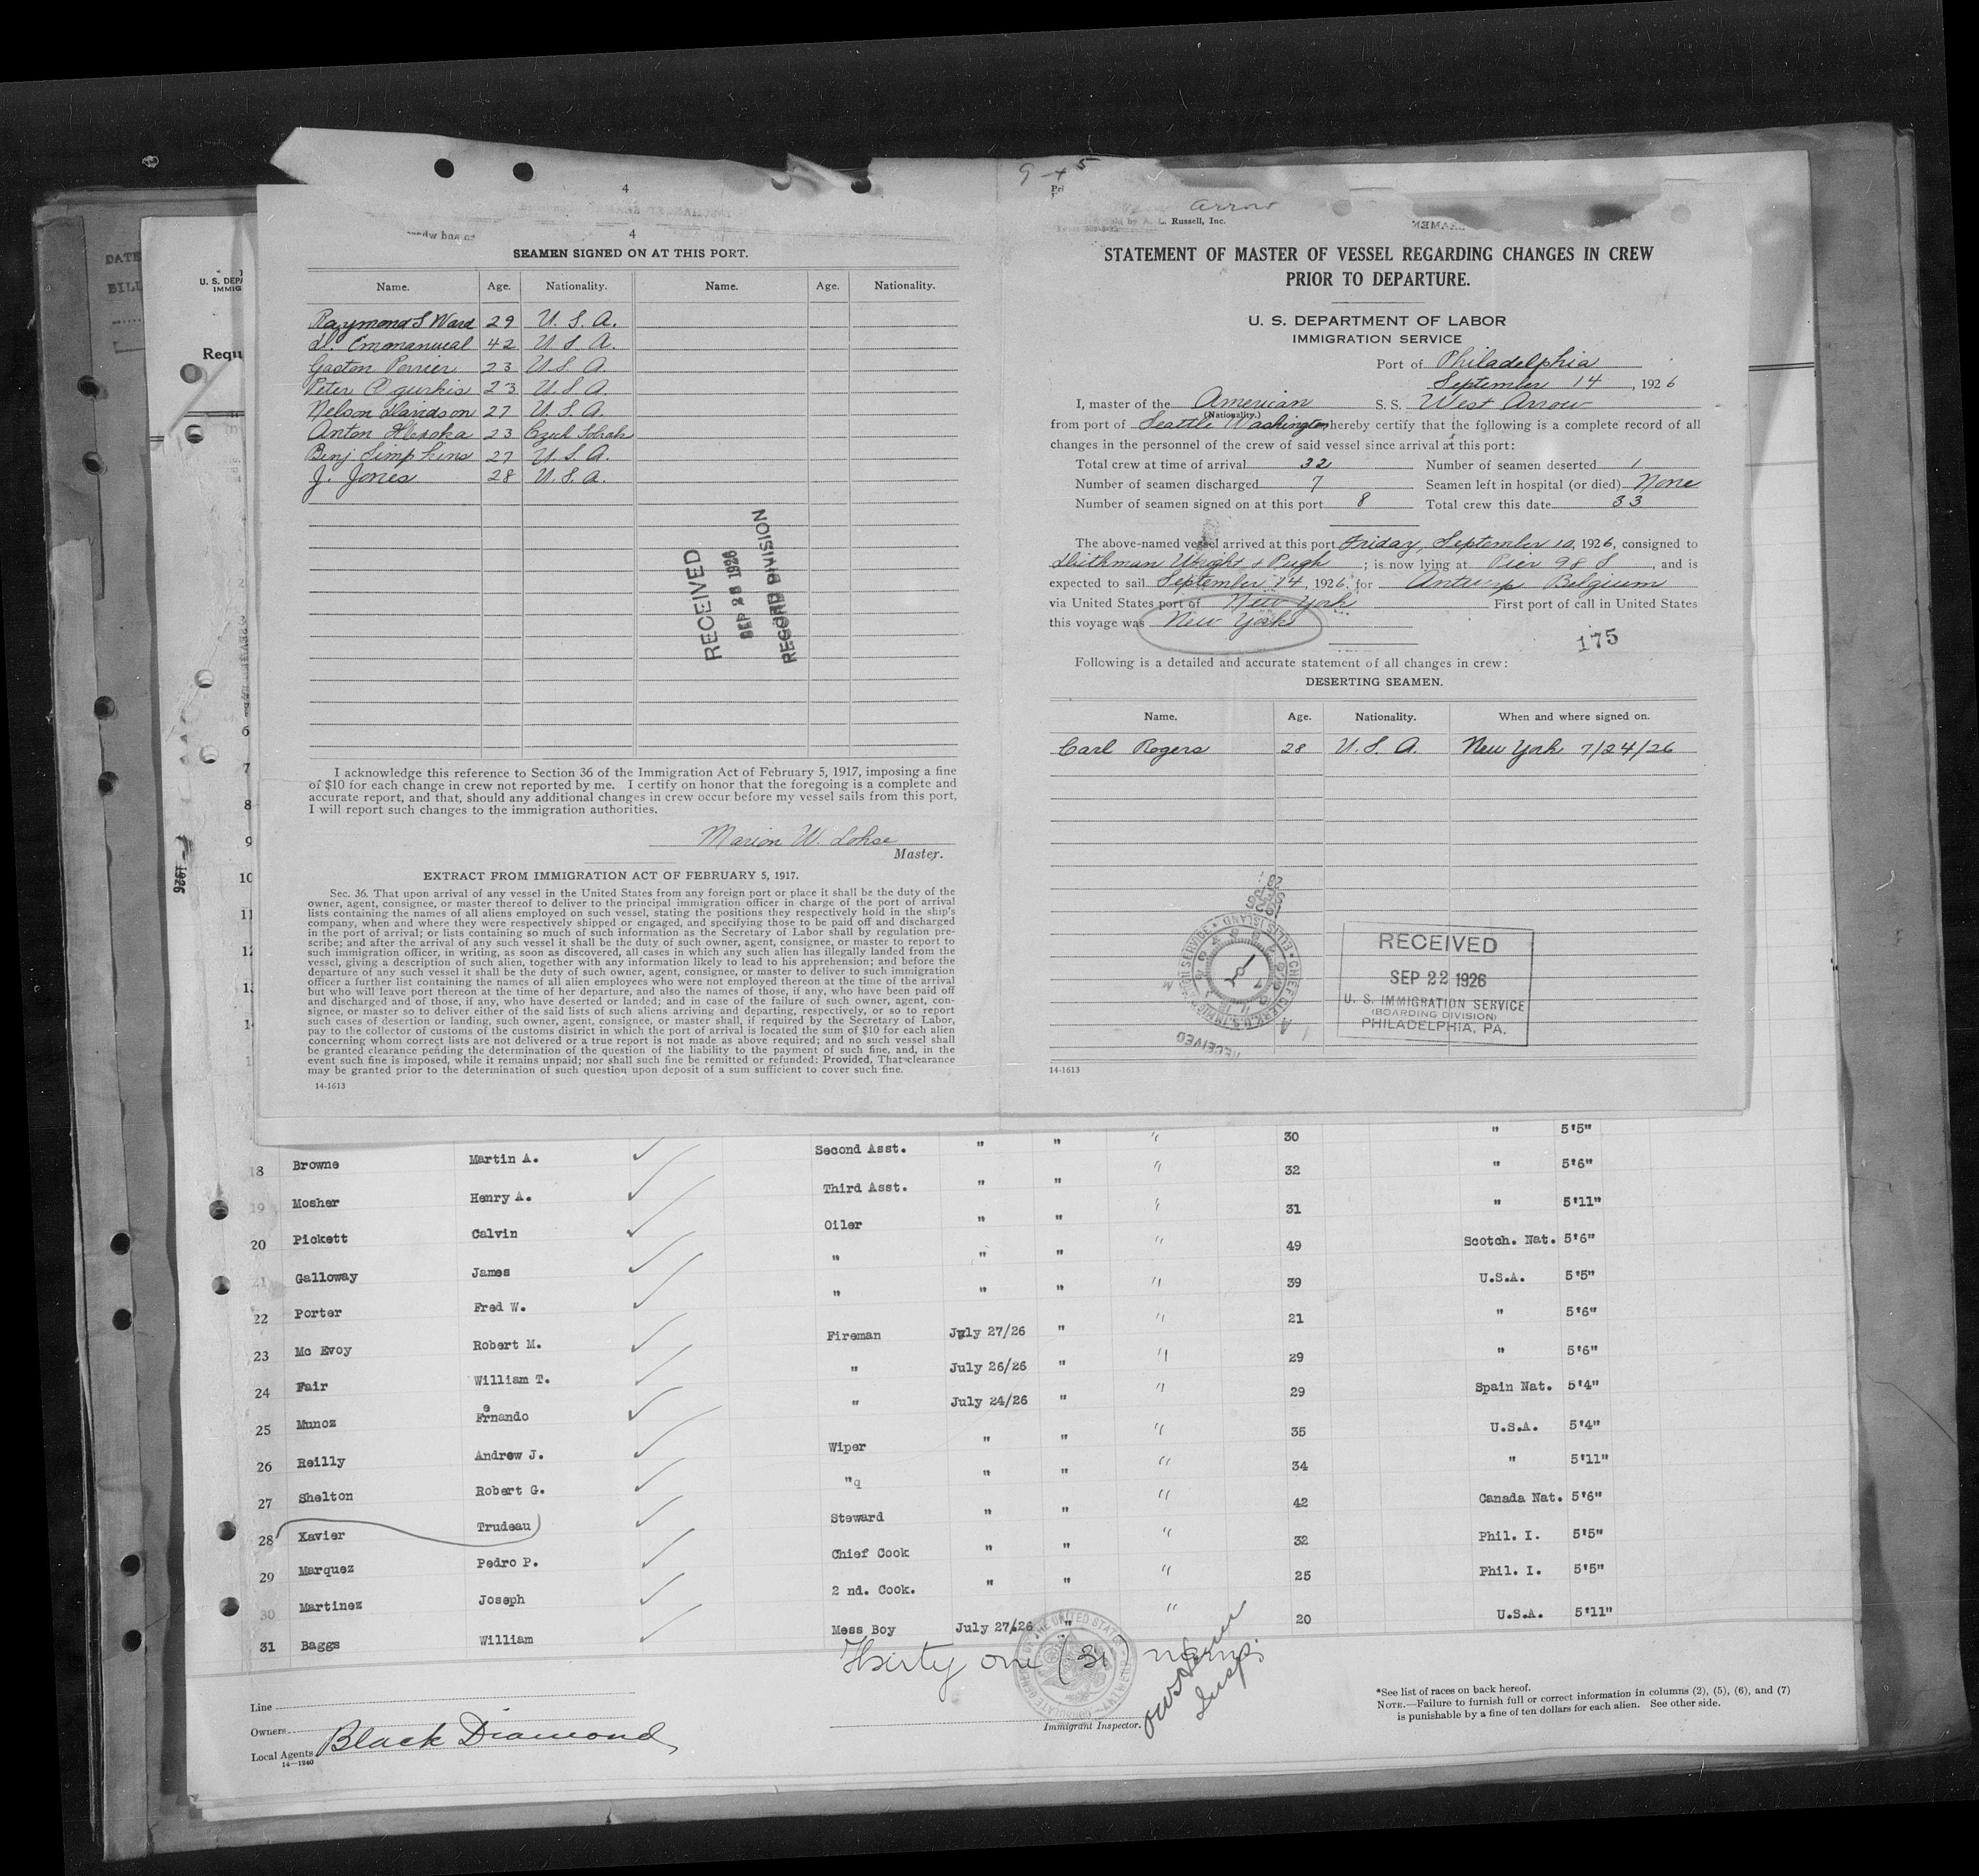 4
4
SEAMEN SIGNED ON AT THIS PORT.
Name. Age. Nationality. Name. Age. Nationality.
Raymond S Ward 29 U. S. A.
D. Emmanueal 42 U S A.
Gaston Perrier 23 U.S. A.
Peter 23 U.S.A.
Nelson Davidson 27 U. S. A.
Anton 23 Czech
Benj Simpkins 27 U. S. A.
J. Jones 28 U. S. A.
RECEIVED
SEP 28 1926
RECORD DIVISION
I acknowledge this reference to Section 36 of the Immigration Act of February 5, 1917, imposing a fine
of $10 for each change in crew not reported by me. I certify on honor that the foregoing is a complete and
accurate report, and that, should any additional changes in crew occur before my vessel sails from this port,
I will report such changes to the immigration authorities.
Marion W. Lohse
Master.
EXTRACT FROM IMMIGRATION ACT OF FEBRUARY 5, 1917.
Sec. 36. That upon arrival of any vessel in the United States from any foreign port or place it shall be the duty of the
owner, agent, consignee, or master thereof to deliver to the principal immigration officer in charge of the port of arrival
lists containing the names of all aliens employed on such vessel, stating the positions they respectively hold in the ship's
company, when and where they were respectively shipped or engaged, and specifying those to be paid off and discharged
in the port of arrival; or lists containing so much of such information as the Secretary of Labor shall by regulation pre-
scribe; and after the arrival of any such vessel it shall be the duty of such owner, agent, consignee, or master to report to
such immigration officer, in writing, as soon as discovered, all cases in which any such alien has illegally landed from the
vessel, giving a description of such alien, together with any information likely to lead to his apprehension; and before the
departure of any such vessel it shall be the duty of such owner, agent, consignee, or master to deliver to such immigration
officer a further list containing the names of all alien employees who were not employed thereon at the time of the arrival
but who will leave port thereon at the time of her departure, and also the names of those, if any, who have been paid off
and discharged and of those, if any, who have deserted or landed; and in case of the failure of such owner, agent, con-
signee, or master so to deliver either of the said lists of such aliens arriving and departing, respectively, or so to report
such cases of desertion or landing, such owner, agent, consignee, or master shall, if required by the Secretary of Labor,
pay to the collector of customs of the customs district in which the port of arrival is located the sum of $10 for each alien
concerning whom correct lists are not delivered or a true report is not made as above required; and no such vessel shall
be granted clearance pending the determination of the question of the liability to the payment of such fine, and, in the
event such fine is imposed, while it remains unpaid; nor shall such fine be remitted or refunded: Provided, That clearance
may be granted prior to the determination of such question upon deposit of a sum sufficient to cover such fine.
14-1613
Arrow
Russell, Inc.
STATEMENT OF MASTER OF VESSEL REGARDING CHANGES IN CREW
PRIOR TO DEPARTURE.
U. S. DEPARTMENT OF LABOR
IMMIGRATION SERVICE
Port of Philadelphia
September 14, 1926
I, master of the American S. S. West Arrow
(Nationality.)
from port of Seattle Washington hereby certify that the following is a complete record of all
changes in the personnel of the crew of said vessel since arrival at this port:
Total crew at time of arrival 32 Number of seamen deserted 1
Number of seamen discharged 7 Seamen left in hospital (or died) None
Number of seamen signed on at this port 8 Total crew this date 33
The above-named vessel arrived at this port Friday, September 10, 1926, consigned to
Wright & Pugh; is now lying at Pier 98 S, and is
expected to sail September 14, 1926, for Antwerp Belgium
via United States port of New York First port of call in United States
this voyage was New York
175
Following is a detailed and accurate statement of all changes in crew:
DESERTING SEAMEN.
Name. Age. Nationality. When and where signed on.
Carl Rogers 28 U. S. A. New York 7/24/26
RECEIVED
SEP 22 1926
U. S. IMMIGRATION SERVICE
(BOARDING DIVISION)
PHILADELPHIA, PA.
14-1613
DATE
BILL
U. S. DEPA
IMMIG
Requ
6
7
8
9
10
11
12
1926
Second Asst. " " " 30 " 5'5"
18 Browne Martin A. Third Asst. " " " 32 " 5'6"
19 Mosher Henry A. Oiler " " " 31 " 5'11"
20 Pickett Calvin " " " " 49 Scotch. Nat. 5'6"
21 Galloway James " " " " 39 U.S.A. 5'5"
22 Porter Fred W. Fireman July 27/26 " " 21 " 5'6"
23 Mc Evoy Robert M. " July 26/26 " " 29 " 5'6"
24 Fair William T. " July 24/26 " " 29 Spain Nat. 5'4"
25 Munoz Fernando Wiper " " " 35 U.S.A. 5'4"
26 Reilly Andrew J. "q " " " 34 " 5'11"
27 Shelton Robert G. Steward " " " 42 Canada Nat. 5'6"
28 Xavier Trudeau Chief Cook " " " 32 Phil. I. 5'5"
29 Marquez Pedro P. 2 nd. Cook. " " " 25 Phil. I. 5'5"
30 Martinez Joseph Mess Boy July 27/26 " " 20 U.S.A. 5'11"
31 Baggs William
Thirty one (31) names
Line
Owners
Local Agents Black Diamond
14—1240
Immigrant Inspector.
*See list of races on back hereof.
NOTE.—Failure to furnish full or correct information in columns (2), (5), (6), and (7)
is punishable by a fine of ten dollars for each alien. See other side.